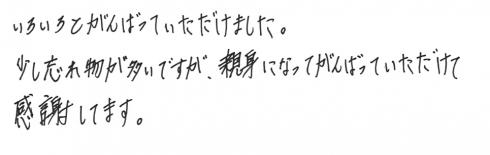 いろいろとがんばっていただけました。
少し忘れ物が多いですが、親身になってがんばっていただけて
感謝してます。